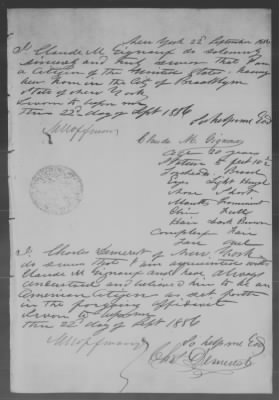 New York 22d September 1886
I Claude M. do solemnly
sincerely and truly swear that I am
a Citizen of the United States, having
been born in the City of Brooklyn
State of New York
Sworn to before me
this 22d day of Sept 1886
So help me God
Claude M.
Age 20 years
Stature 5 feet 10½
Forehead Broad
Eyes Light Hazel
Nose Short
Mouth Prominent
Chin Full
Hair Dark Brown
Complexion Fair
Face Oval
I Charles Demerest of New York
do swear that I am acquainted with
Claude M. and have always
understood and believed him to be an
American citizen as set forth
in the foregoing affidavit
Sworn to before me
this 22 day of Sept 1886
So help me God
Chas Demerest